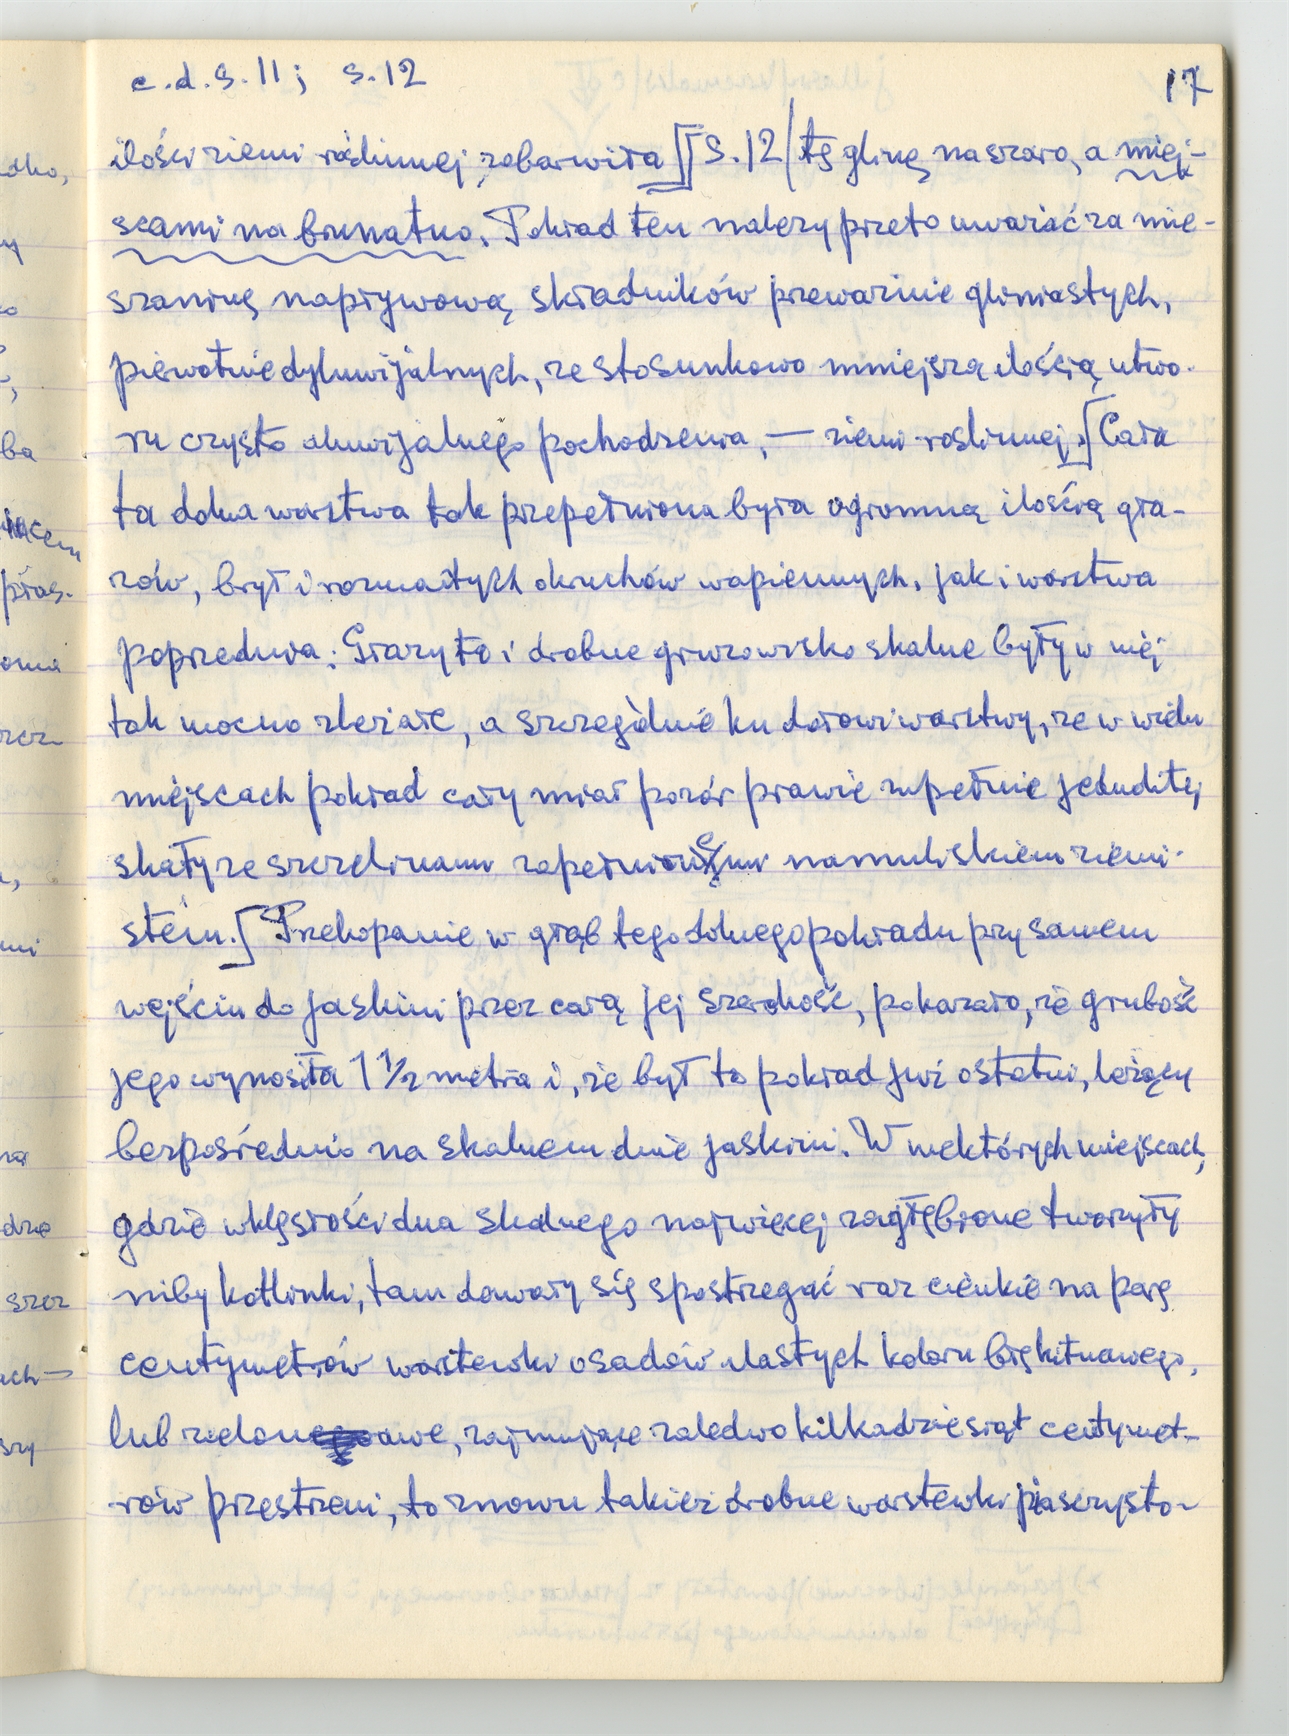 c.d.s.11; s.12
17
ilości ziemi roślinnej, zabarwiła ]] s.12/ tę glinę na szaro, a miej-
scami na brunatno. Pokład ten należy przeto uważać za mie-
szaninę napływową składników przeważnie gliniastych,
pierwotnie dyluwijalnych, ze stosunkowo mniejszą ilością utwo-
ru czysto aluwijalnego pochodzenia, — ziemi roślinnej. [Cała
ta dolna warstwa tak przepełniona była ogromną ilością gła-
zów, brył i rozmaitych okruchów wapiennych, jak i warstwa
poprzednia; Głazy te i drobne gruzowisko skalne były w niéj
tak mocno zleżałe, a szczególnie ku dołowi warstwy, że w wielu
miejscach pokład cały miał pozór prawie zupełnie jednolitej
skały ze szczelinami zapełnionemi namuliskiem ziemi-
stém.] Przekopanie w głąb tego dolnego pokładu przy samem
wejściu do jaskini przez całą jej szerokość, pokazało, że grubość
jego wynosiła 1 1/2 metra i, że był to pokład już ostatni, leżący
bezpośrednio na skalnem dnie jaskini. W niektórych miejscach,
gdzie wklęsłości dna skalnego najwięcej zagłębione tworzyły
niby kotlinki, tam dawały się spostrzegać raz cieńkie na parę
centymetrów warstewki osadów ilastych koloru błękitnawego,
lub zielonawe, zajmujące zaledwo kilkadziesiąt centymet-
rów przestrzeni, to znowu takież drobne warstewki piaszczysto-
odko,
ba
płas-
szcz
ach —
szy